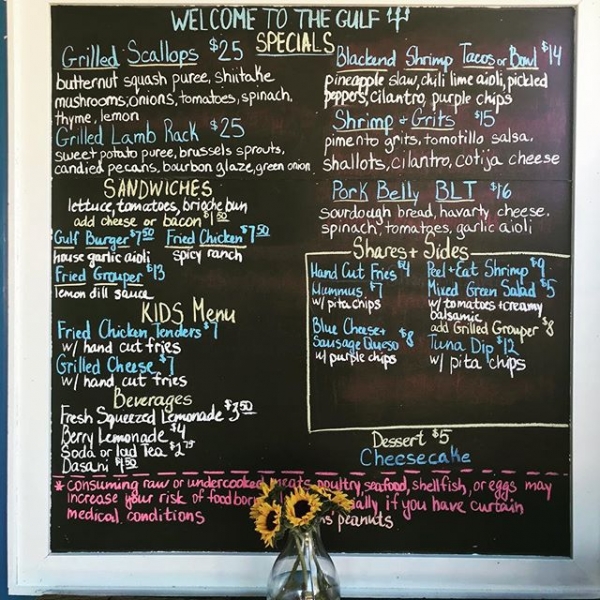 WELCOME TO THE GULF
SPECIALS
Grilled Scallops $25
butternut squash puree, shiitake
mushrooms, onions, tomatoes, spinach,
thyme, lemon
Grilled Lamb Rack $25
sweet potato puree, brussels sprouts,
candied pecans, bourbon glaze, green onion
SANDWICHES
lettuce, tomatoes, brioche bun
add cheese or bacon $1.50
Gulf Burger $7.50
house garlic aioli
Fried Chicken $7.50
spicy ranch
Fried Grouper $13
lemon dill sauce
KIDS Menu
Fried Chicken Tenders $7
w/ hand cut fries
Grilled Cheese $7
w/ hand cut fries
Beverages
Fresh Squeezed Lemonade $3.50
Berry Lemonade $4
Soda or Iced Tea $2.75
Dasani $1.50
Blackend Shrimp Tacos or Bowl $14
pineapple slaw, chili lime aioli, pickled
peppers, cilantro, purple chips
Shrimp + Grits $15
pimento grits, tomotillo salsa,
shallots, cilantro, cotija cheese
Pork Belly BLT $16
sourdough bread, havarty cheese,
spinach, tomatoes, garlic aioli
Shares + Sides
Hand Cut Fries $4
Hummus $7
w/ pita chips
Blue Cheese +
Sausage Queso $8
w/ purple chips
Peel + Eat Shrimp $9
Mixed Green Salad $5
w/ tomatoes + creamy
balsamic
add Grilled Grouper $8
Tuna Dip $12
w/ pita chips
Dessert $5
Cheesecake
* consuming raw or undercooked meats, poultry, seafood, shellfish, or eggs may
increase your risk of if you have curtain
medical conditions peanuts